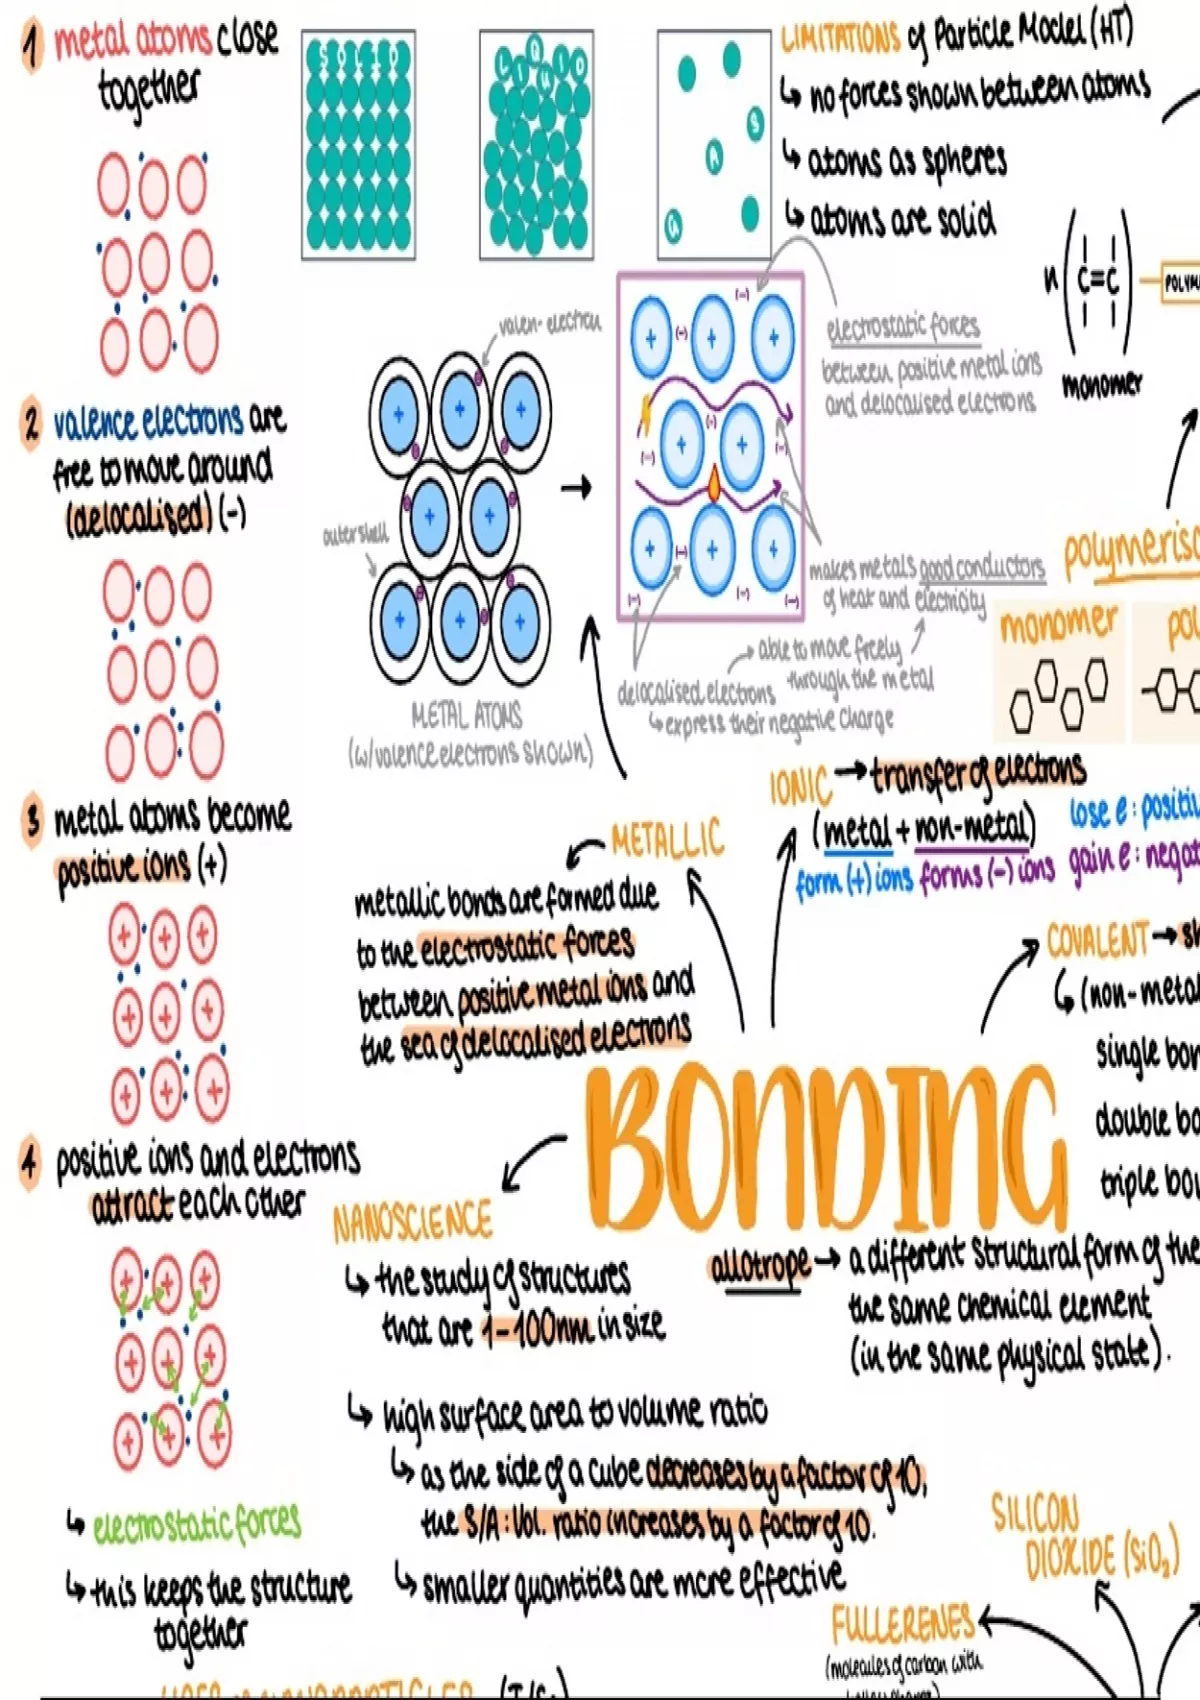 1 metal atoms close
together
SOLID
LIQUID
GAS
LIMITATIONS of Particle Model (HT)
↳ no forces shown between atoms
↳ atoms as spheres
↳ atoms are solid
n ( C=C )
monomer
valen-electron
outer shell
METAL ATOMS
(w/valence electrons shown)
electrostatic forces
between positive metal ions
and delocalised electrons
makes metals good conductors
of heat and electricity
→ able to move freely
through the metal
delocalised electrons
↳ express their negative charge
2 valence electrons are
free to move around
(delocalised) (-)
3 metal atoms become
positive ions (+)
4 positive ions and electrons
attract each other
↳ electrostatic forces
↳ this keeps the structure
together
monomer
METALLIC
metallic bonds are formed due
to the electrostatic forces
between positive metal ions and
the sea of delocalised electrons
IONIC → transfer of electrons
(metal + non-metal)
form (+) ions forms (-) ions
lose e :
gain e :
COVALENT →
↳ (non-metal
single
double
triple
BONDING
NANOSCIENCE
↳ the study of structures
that are 1-100nm in size
↳ high surface area to volume ratio
↳ as the side of a cube decreases by a factor of 10,
the S/A : Vol. ratio increases by a factor of 10.
↳ smaller quantities are more effective
allotrope → a different structural form of the
the same chemical element
(in the same physical state).
SILICON
DIOXIDE (SiO₂)
FULLERENES
(molecules of carbon with